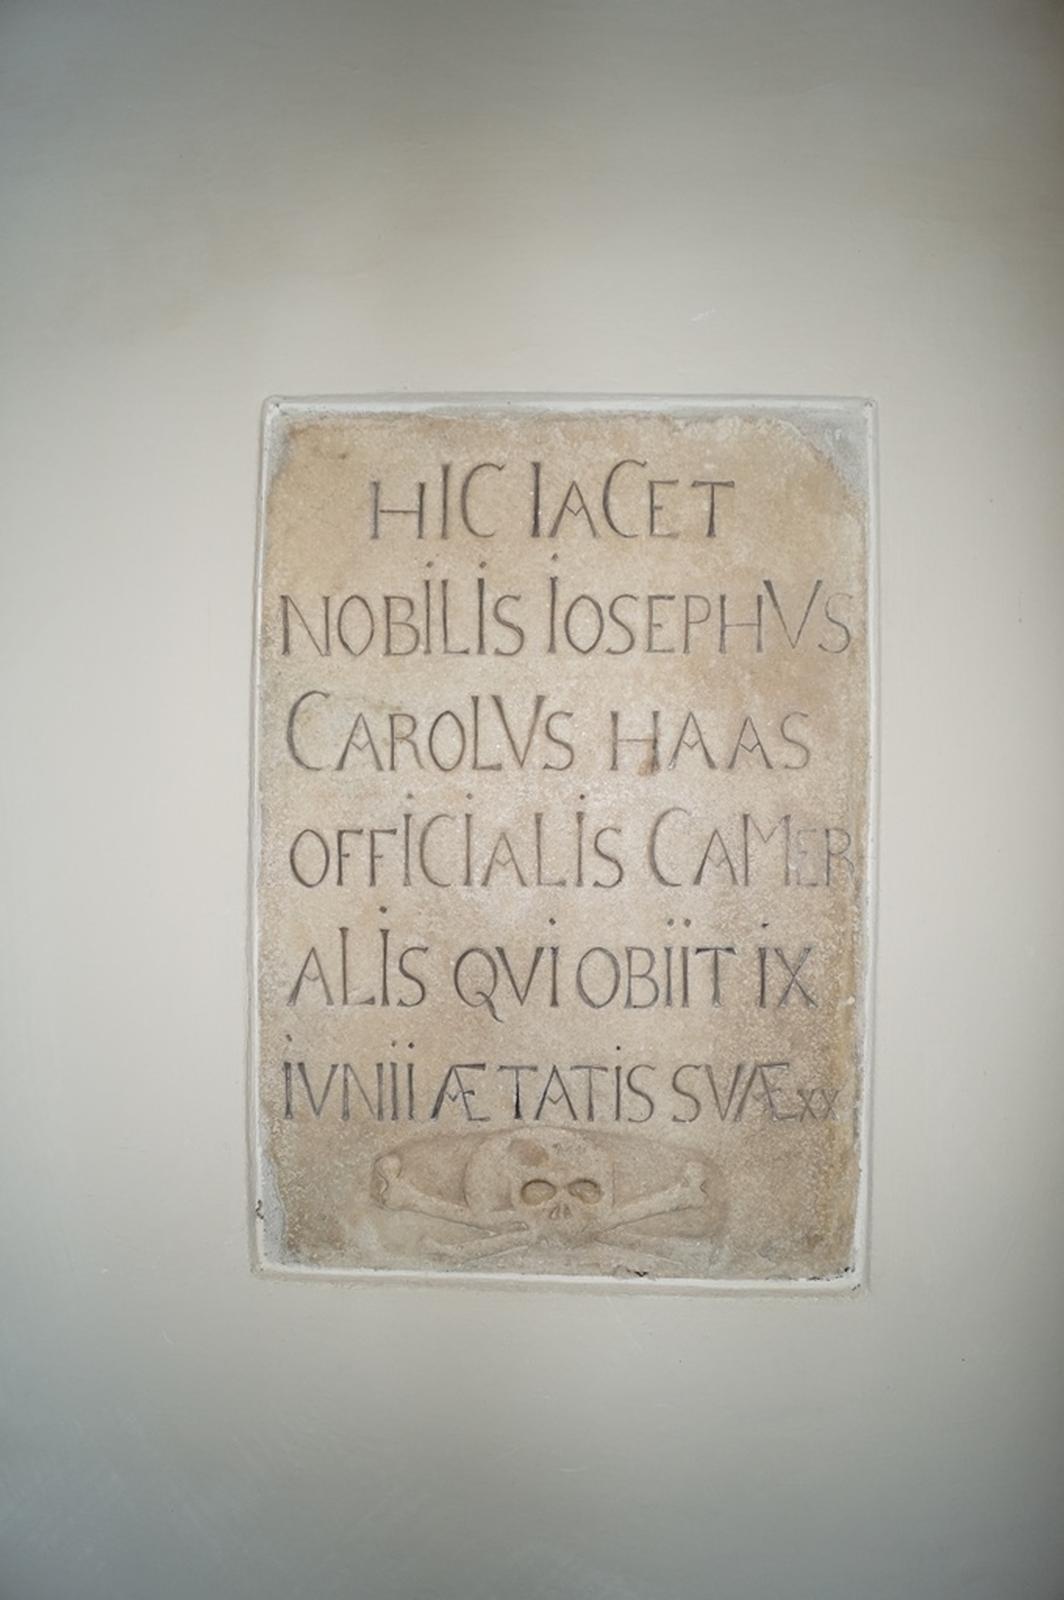 HIC IACET
NOBILIS IOSEPHVS
CAROLVS HAAS
OFFICIALIS CAMER
ALIS QVI OBIIT IX
IVNII ÆTATIS SVÆ XX